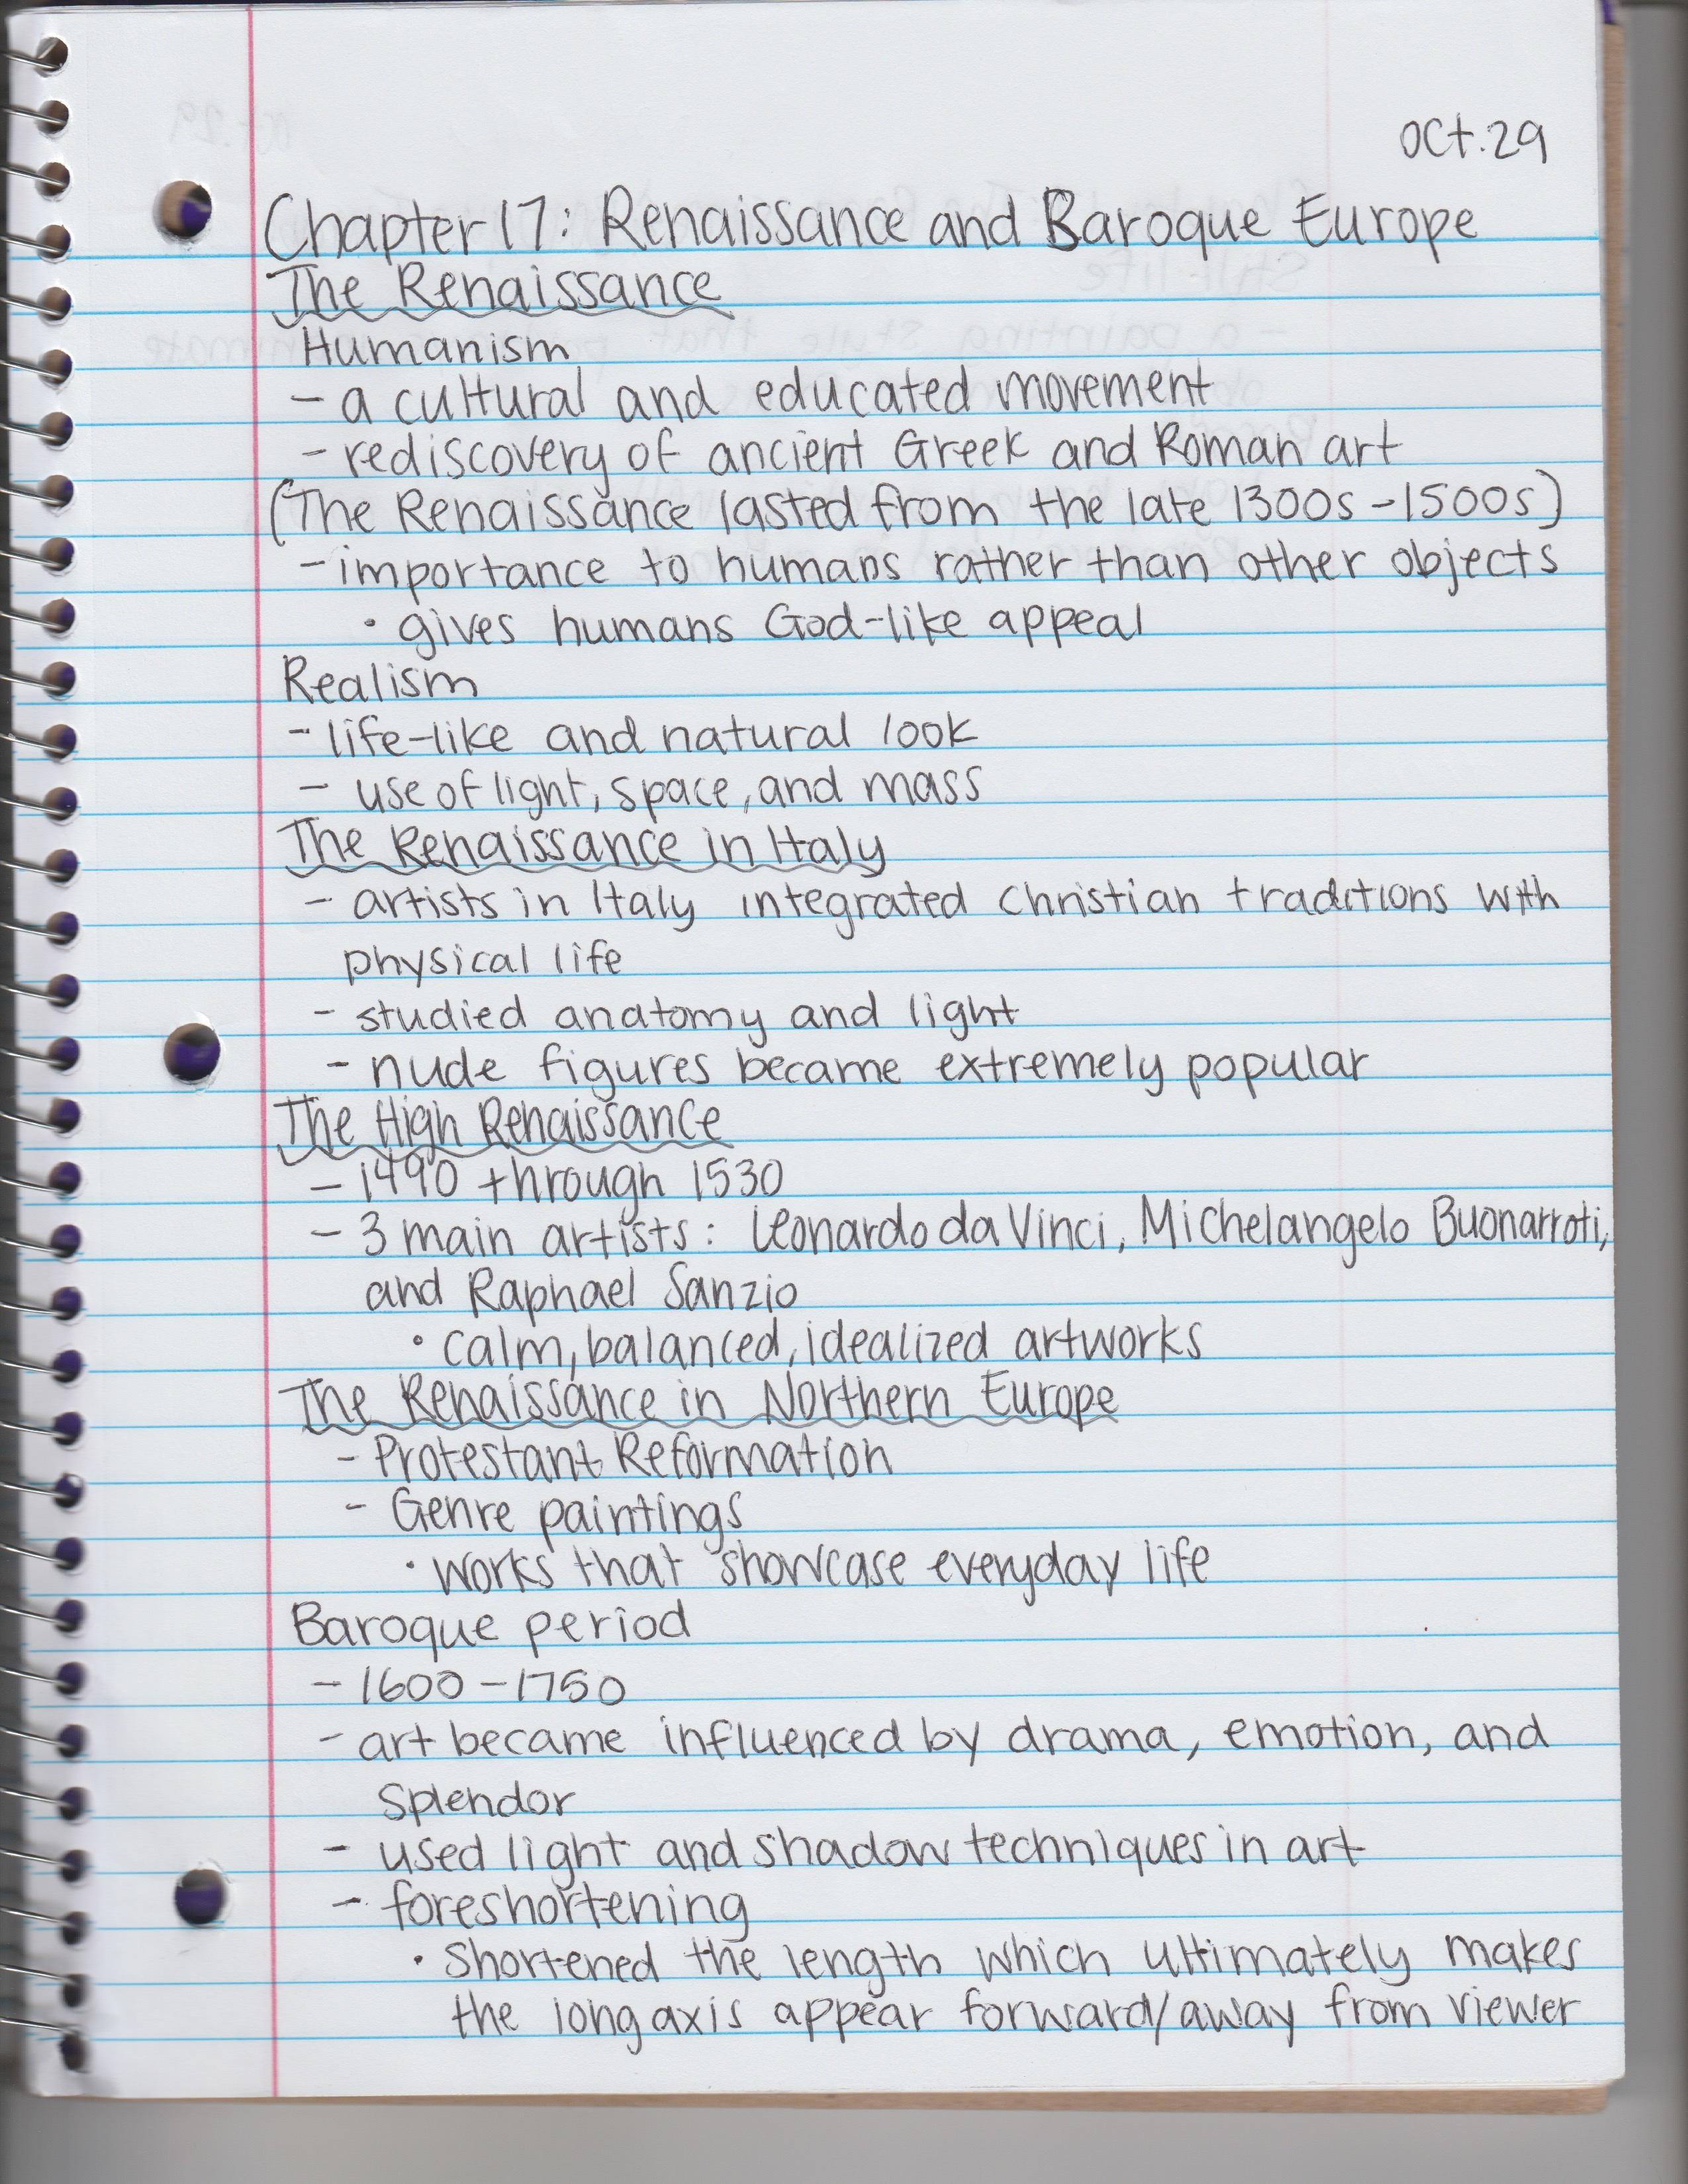 Oct. 29
Chapter 17: Renaissance and Baroque Europe
The Renaissance
Humanism
- a cultural and educated movement
- rediscovery of ancient Greek and Roman art
(The Renaissance lasted from the late 1300s - 1500s)
- importance to humans rather than other objects
• gives humans God-like appeal
Realism
- life-like and natural look
- use of light, space, and mass
The Renaissance in Italy
- artists in Italy integrated Christian traditions with
physical life
- studied anatomy and light
- nude figures became extremely popular
The High Renaissance
- 1490 through 1530
- 3 main artists: Leonardo da Vinci, Michelangelo Buonarroti,
and Raphael Sanzio
• calm, balanced, idealized artworks
The Renaissance in Northern Europe
- Protestant Reformation
- Genre paintings
• works that showcase everyday life
Baroque period
- 1600 - 1750
- art became influenced by drama, emotion, and
splendor
- used light and shadow techniques in art
- foreshortening
• shortened the length which ultimately makes
the long axis appear forward/away from viewer